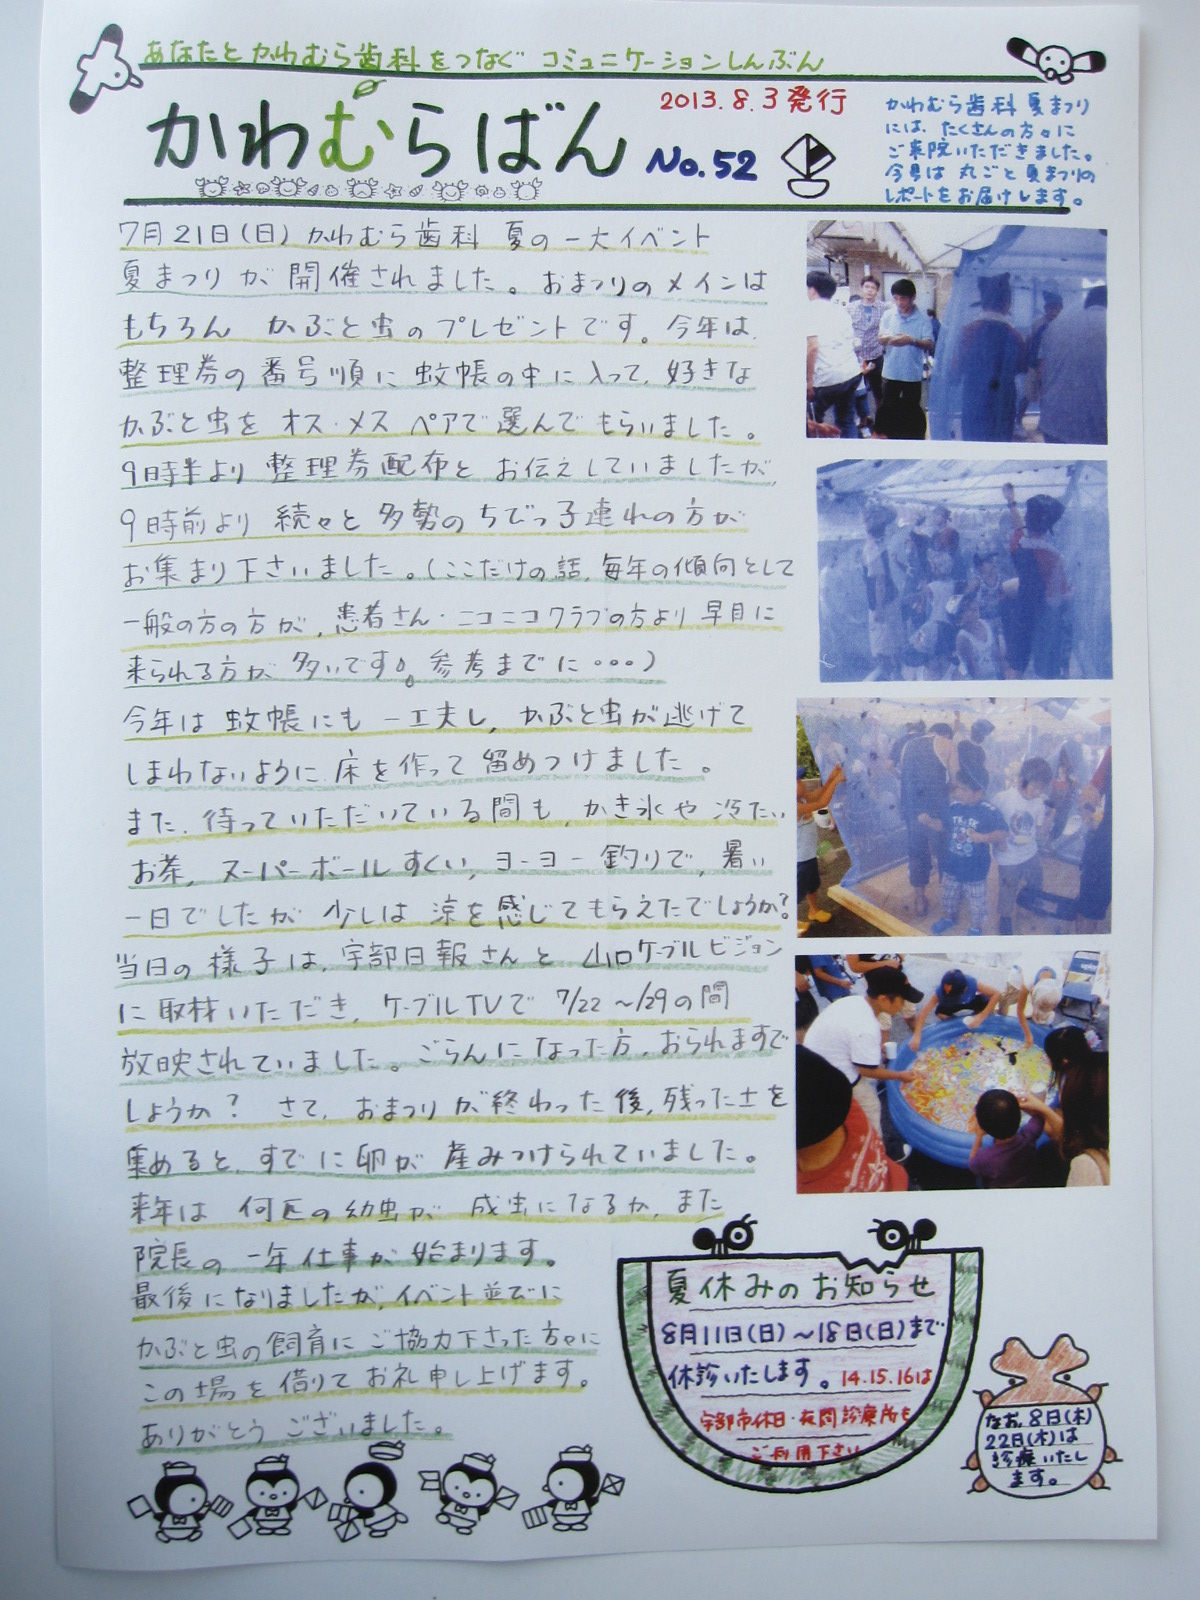 あなたとかわむら歯科をつなぐ コミュニケーションしんぶん
かわむらばん
No.52
2013.8.3発行
かわむら歯科 夏まつり
には、たくさんの方々に
ご来院いただきました。
今号は 丸ごと 夏まつりの
レポートをお届けします。
7月21日(日) かわむら歯科 夏の一大イベント
夏まつりが 開催されました。おまつりのメインは
もちろん かぶと虫のプレゼントです。今年は、
整理券の番号順に 蚊帳の中に入って、好きな
かぶと虫を オス・メス ペアで選んで もらいました。
9時半より 整理券配布と お伝えしていましたが、
9時前より 続々と 多勢のちびっ子連れの方が
お集まり下さいました。(ここだけの話、毎年の傾向として
一般の方の方が、患者さん・ニコニコクラブの方より 早目に
来られる方が 多いです。参考までに・・・)
今年は 蚊帳にも 一工夫し、かぶと虫が逃げて
しまわないように 床を作って 留めつけました。
また、待っていただいている間も、かき氷や 冷たい
お茶、スーパーボールすくい、ヨーヨー釣りで、暑い
一日でしたが 少しは 涼を感じてもらえたでしょうか?
当日の様子は、宇部日報さんと 山口ケーブルビジョン
に取材いただき、ケーブルTVで 7/22～/29の間
放映されていました。ごらんになった方、おられますで
しょうか? さて、おまつりが終わった後、残った土を
集めると、すでに卵が 産みつけられていました。
来年は 何匹の幼虫が 成虫になるか、また
院長の 一年仕事が 始まります。
最後になりましたが、イベント並びに
かぶと虫の飼育に ご協力下さった方々に
この場を借りてお礼申し上げます。
ありがとう ございました。
夏休みのお知らせ
8月11日(日)～18日(日)まで
休診いたします。14.15.16は
宇部市休日・夜間診療所を
ご利用下さい
なお、8日(木)
22日(木)は
診療いたし
ます。